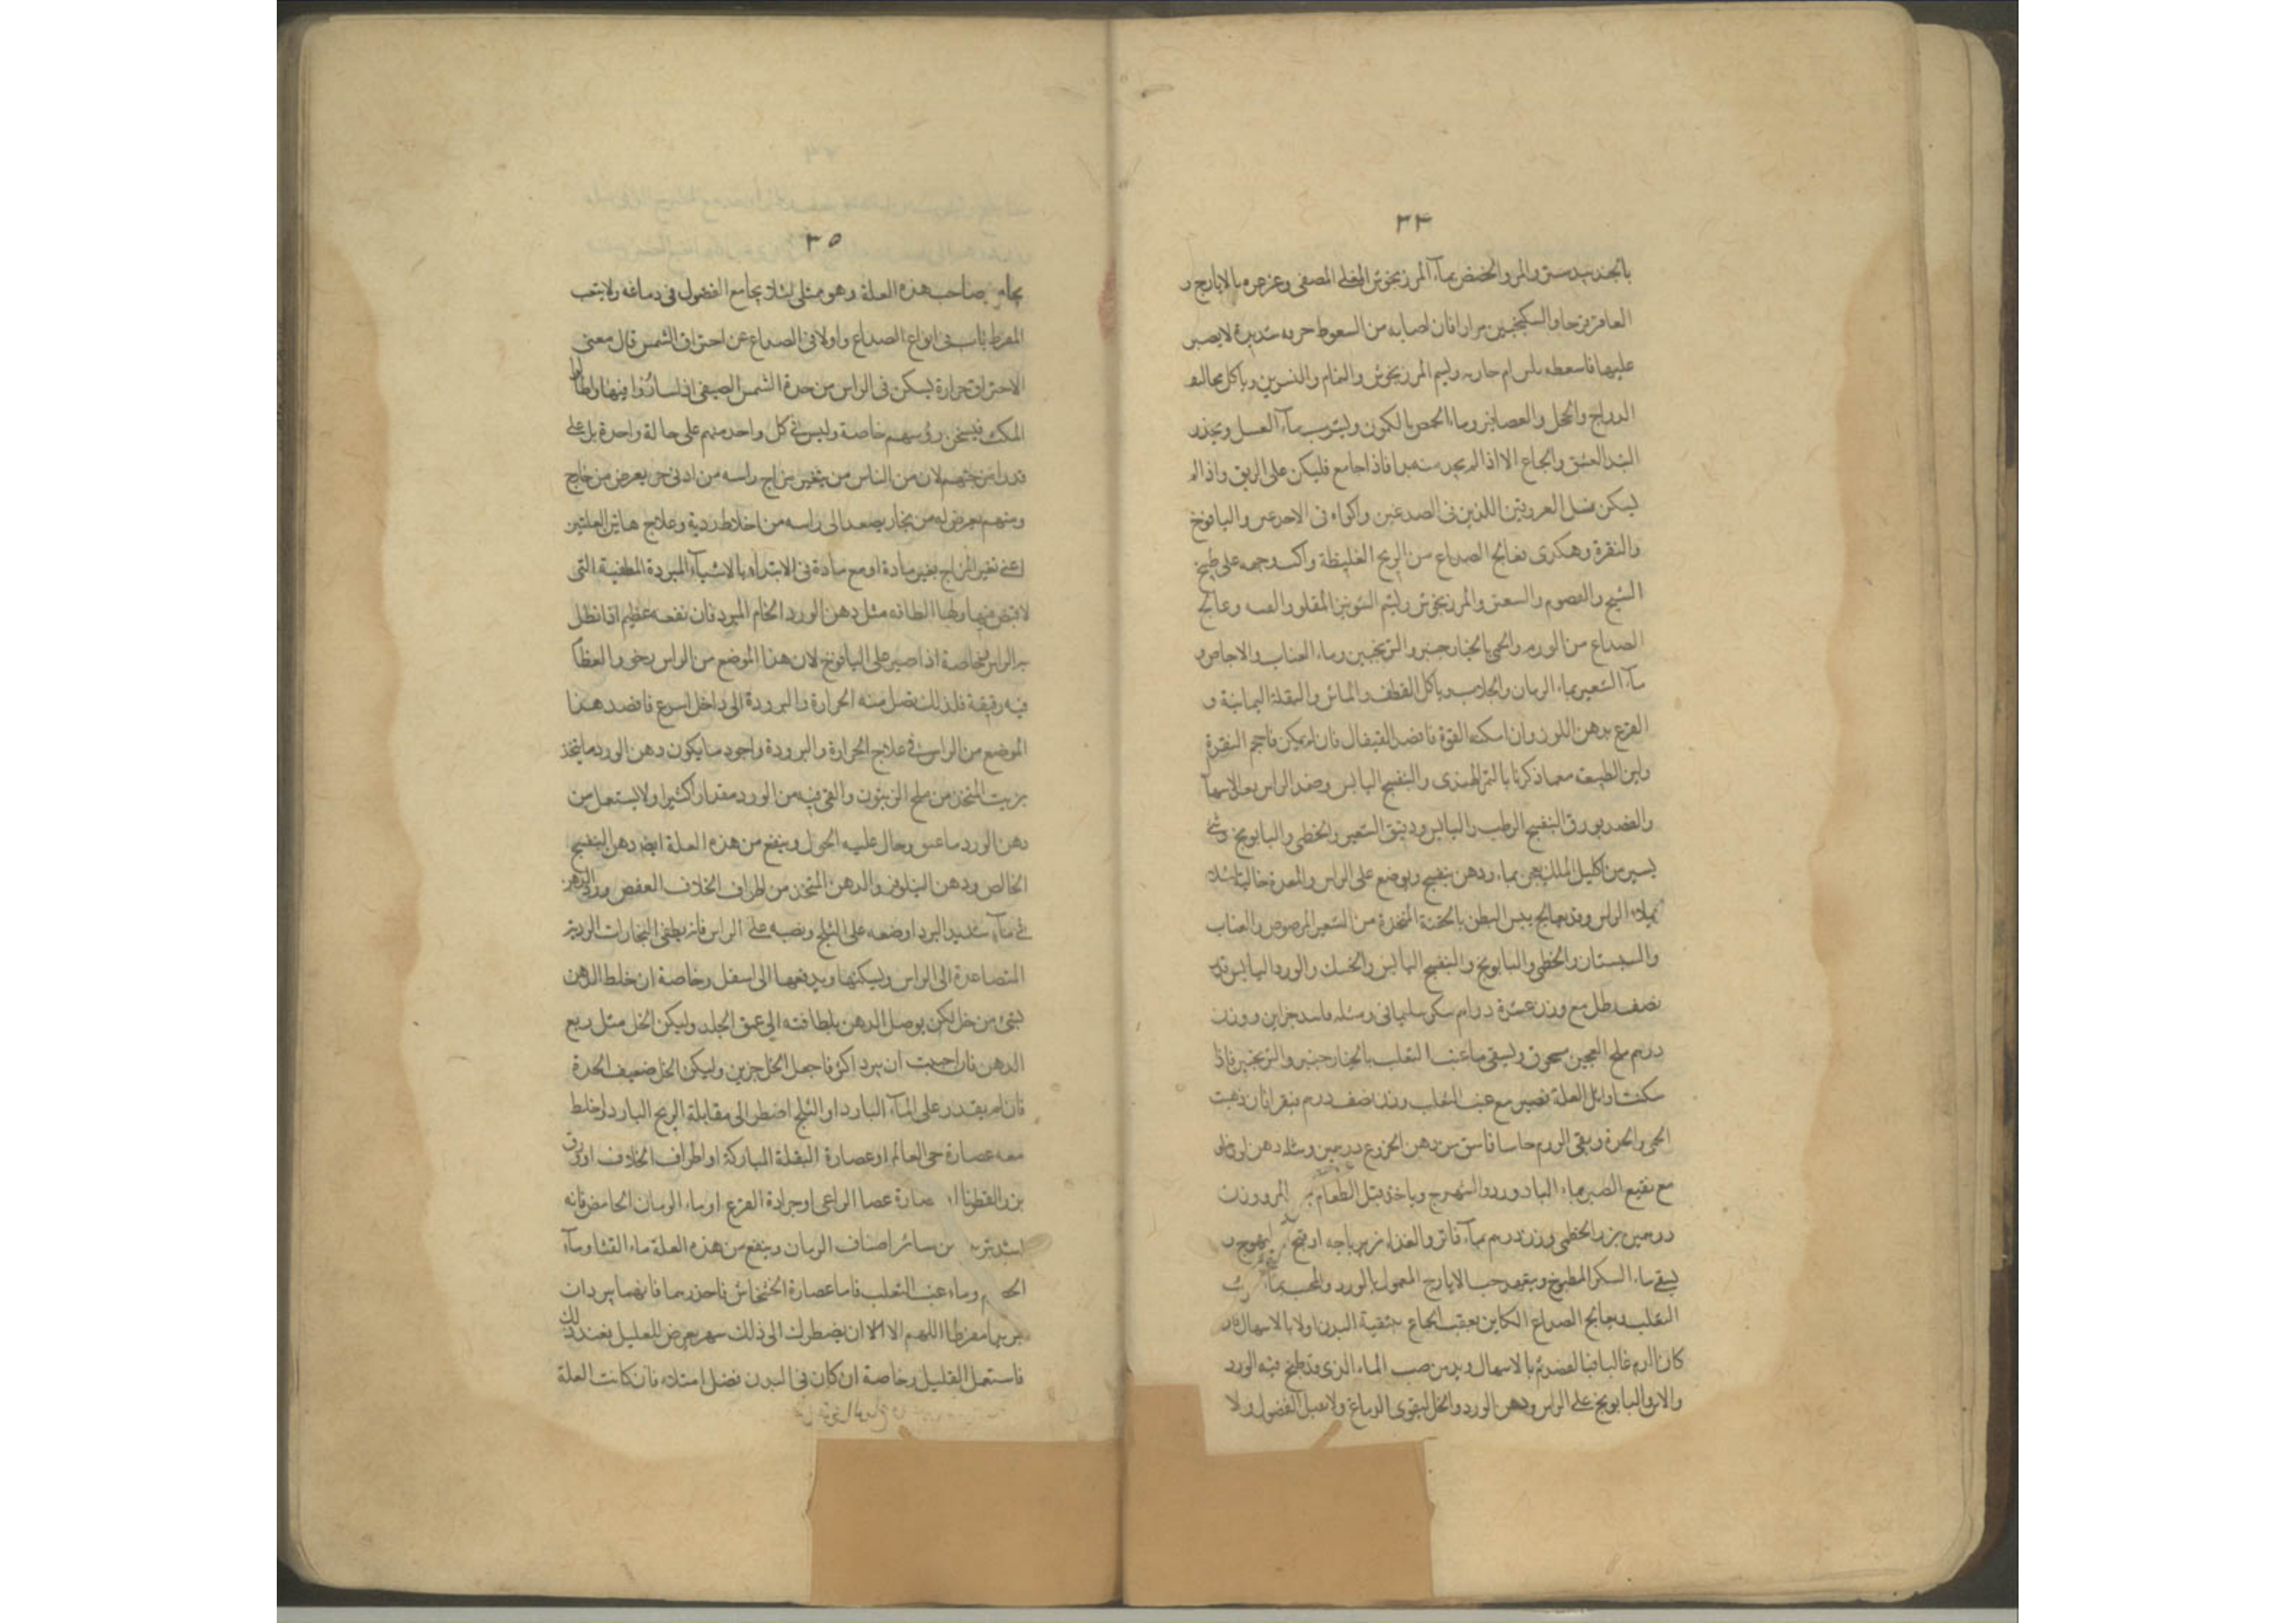 ٣٤
بالجندبيدستر والمر والحضض بماء المرزنجوش المغلي المصفى وغرغره بالايارج و
العاقرقرحا والسكنجبين مرارا فان اصابه من السعوط حرقه شديدة لا يصبر
عليها فاسعطه وليشم المرزنجوش والنمام والنسرين وياكل مخاليف
الدراج والحجل والعصافير وماء الحمص بالكمون وليشرب ماء العسل ويحذر
النبيذ العتيق والجماع الا اذا لم يجد منه بدا فاذا جامع فليكن على الريق واذا لم
يسكن فسل العروقين اللذين في الصدغين واكواه في الاخدعين واليافوخ
والنقرة وهكذى تعالج الصداع من الريح الغليظة واكب وجهه على طبيخ
الشيح والقيصوم والسعتر والمرزنجوش وليشم الشونيز المقلو وعالج
الصداع من الورم والحمى بالخيارجنبر والترنجبين وماء العناب والاجاص و
ماء الشعير بماء الرمان والجلاب وياكل القطف والماش والبقلة اليمانية و
القرع بدهن اللوز وان امكنه القوة فافصد القيفال فان لم يمكن فاحجم النقرة
ولين الطبيعة معما ذكرنا بالتمر الهندى والبنفسج اليابس وضمد الراس بعد الاسهال
والفصد بورق البنفسج الرطب واليابس ودقيق الشعير والخطمى والبابونج وشئ
يسير من اكليل الملك بماء ودهن بنفسج ويوضع على الراس والمعدة خالية لئلا
يملاء الراس وقد يعالج يبس البطن بالحقنة المتخذة من الشعير المرضوض والعناب
والسبستان والخطمى والبابونج والبنفسج اليابس والحسك والورد اليابس قدر
نصف رطل مع وزن عشرة دراهم سكر سليمانى ومثله ووزن
درهم ملح العجين مسحوق ويسقى ماء عنب الثعلب بالخيارجنبر والترنجبين فاذا
سكنت اوائل العلة فصبر مع عنب الثعلب وزن نصف درهم فان ذهبت
الحمى والحرة وبقى الورم جاسا فاسق من دهن الخروع درهمين ومثله دهن لوز حلو
مع نقيع الصبر بماء البادورد والشهترج وياخذ قبل الطعام المر وزن
درهمين بزر الخطمى وزن درهم بماء فاتر والغذاء زيرباجه
يسقى ماء السكر المطبوخ ويتعهد حب الايارج المعمول بالورد والمحب بماء
الثعلب ويعالج الصداع الكاين بعقب الجماع بتنقية البدن اولا بالاسهال وان
كان الدم غالبا فبالفصد ثم بالاسهال وبدمن صب الماء الذى قد طبخ فيه الورد
والاس والبابونج على الراس ودهن الورد والخل ليقوى الدماغ ولا يقبل الفضول ولا
٣٥
يجامع صاحب هذه العلة وهو ممتلى لئلا يجامع الفضول في دماغه ولا يتعب
المفرط باب في انواع الصداع واولا في الصداع عن احتراق الشمس قال معنى
الاحتراق حرارة يسكن في الراس من حدة الشمس الصيفى اذا سافروا فيها واطالوا
المكث فيسخن رؤسهم خاصة وليس في كل واحد منهم على حالة واحدة بل على
قدر امزجتهم لان من الناس من يتغير مزاج راسه من ادنى حر يعرض من خارج
ومنهم يعرض له من بخار يصعد الى راسه من اخلاط ردية وعلاج هاتين العلتين
اعنى تغير المزاج بغير مادة او مع مادة في الابتداء بالاشياء المبردة المطفية التى
لا قبض فيها ولها لطافة مثل دهن الورد الخام المبرد فان نفعه عظيم اذا نطل
به الراس بخاصة اذا صير على اليافوخ لان هذا الموضع من الراس رخو والعظام
فيه رقيقة فلذلك تصل منه الحرارة والبرودة الى داخل اسرع فاقصد هذا
الموضع من الراس في علاج الحرارة والبرودة واجود ما يكون دهن الورد ما يتخذ
بزيت المتخذ من ملح الزيتون والقى فيه من الورد مقدارا كثيرا ولا يستعمل من
دهن الورد ما عتق وحال عليه الحول وينفع من هذه العلة ايضا دهن البنفسج
الخالص ودهن النيلوفر والدهن المتخذ من اطراف الخلاف الغض وبرد الدهن
في ماء شديد البرد او ضعه على الثلج وتصبه على الراس فانه يطفى البخارات الردية
المتصاعدة الى الراس ويسكنها ويدفعها الى اسفل وخاصة ان خلط الدهن
بشئ من خل لكن يوصل الدهن بلطافته الى عمق الجلد وليكن الخل مثل ربع
الدهن فان احببت ان يبرد اكثر فاجعل الخل جزين وليكن الخل ضعيف الحدة
فان لم يقدر على الماء البارد او الثلج اضطر الى مقابلة الريح البارد او خلط
معه عصارة حى العالم او عصارة البقلة المباركة او اطراف الخلاف او ورق
بزر القطونا او عصارة عصا الراعى او جرادة القرع او ماء الرمان الحامض فانه
اشد تبريد من سائر اصناف الرمان وينفع من هذه العلة ماء القثاء وماء
وماء عنب الثعلب فاما عصارة الخشخاش فاحذرهما فانهما يبردان
تبريدا مفرطا اللهم الا ان يضطرك الى ذلك سهر يعرض للعليل فعند ذلك
فاستعمل القليل وخاصة ان كان فى البدن فضل امتلاء فان كانت العلة